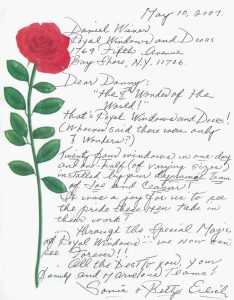 May 10, 2007.
Daniel Wiener
Royal Windows and Doors
1769 Fifth Avenue
Bay Shore, N.Y. 11706.
Dear Danny:
"the 8th Wonder of the
World!"
that's Royal Windows and Doors!
(Whoever said there were only
7 Wonders?)
Twenty four windows in one day
and one half (of varying sizes)
installed by your dynamic team
of Joe and league!
It was a joy for us to see
the pride these men take in
their work!
Through the Special Magic
of Royal Windows - we now can
see Forever!!
All the best to you, your
family and Marvelous Teams!
Sonia &